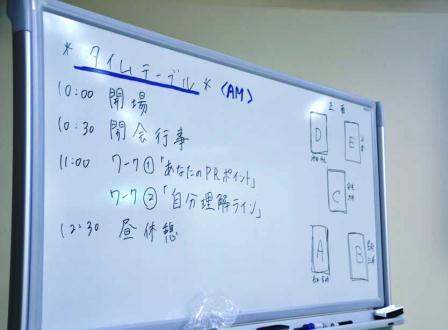 * タイムテーブル * (AM)
10:00 開場
10:30 開会行事
11:00 ワーク①「あなたのPRポイント」
ワーク②「自分理解ライン」
12:30 昼休憩
正面
D E
C
A B